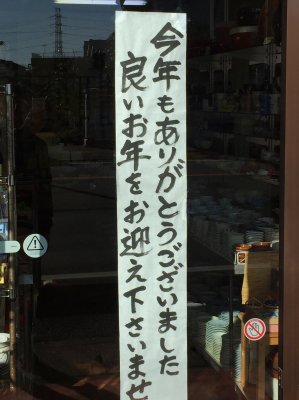 今年もありがとうございました
良いお年をお迎え下さいませ